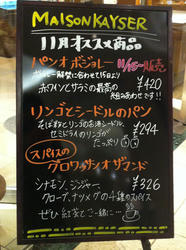 MAISON KAYSER
11月オススメ商品
パンオボジョレー 11/15〜販売
ボジョレー解禁に合わせて15日より
赤ワインとサラミの最高の ¥420
組み合わせです!!
リンゴとシードルのパン
そば粉とリンゴのお酒シードル、 ¥294
セミドライのリンゴが
たっぷり
スパイスの
グロワッサンオザマンド
シナモン、ジンジャー、 ¥326
クローブ、ナツメグの4種のスパイス
ぜひ紅茶とご一緒に…